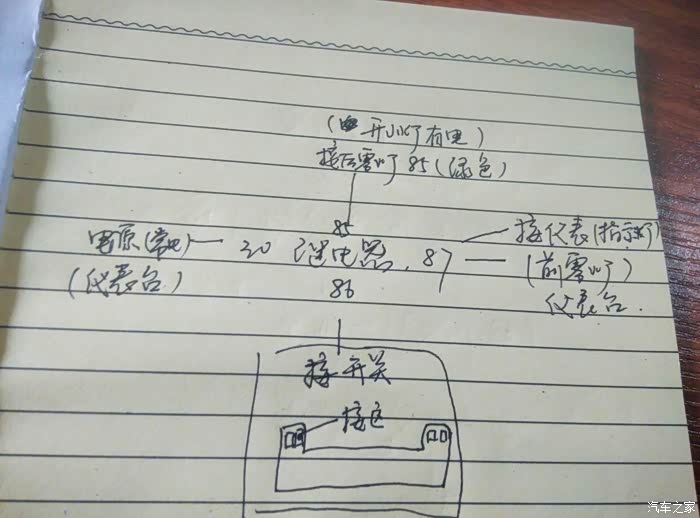 (开小灯有电)
接后雾灯 85 (绿色)
85
电原(常电) — 30 继电器. 87 — 接仪表(指示灯)
(仪表台) 86 (前雾灯)
仪表台.
接开关
接这
汽车之家